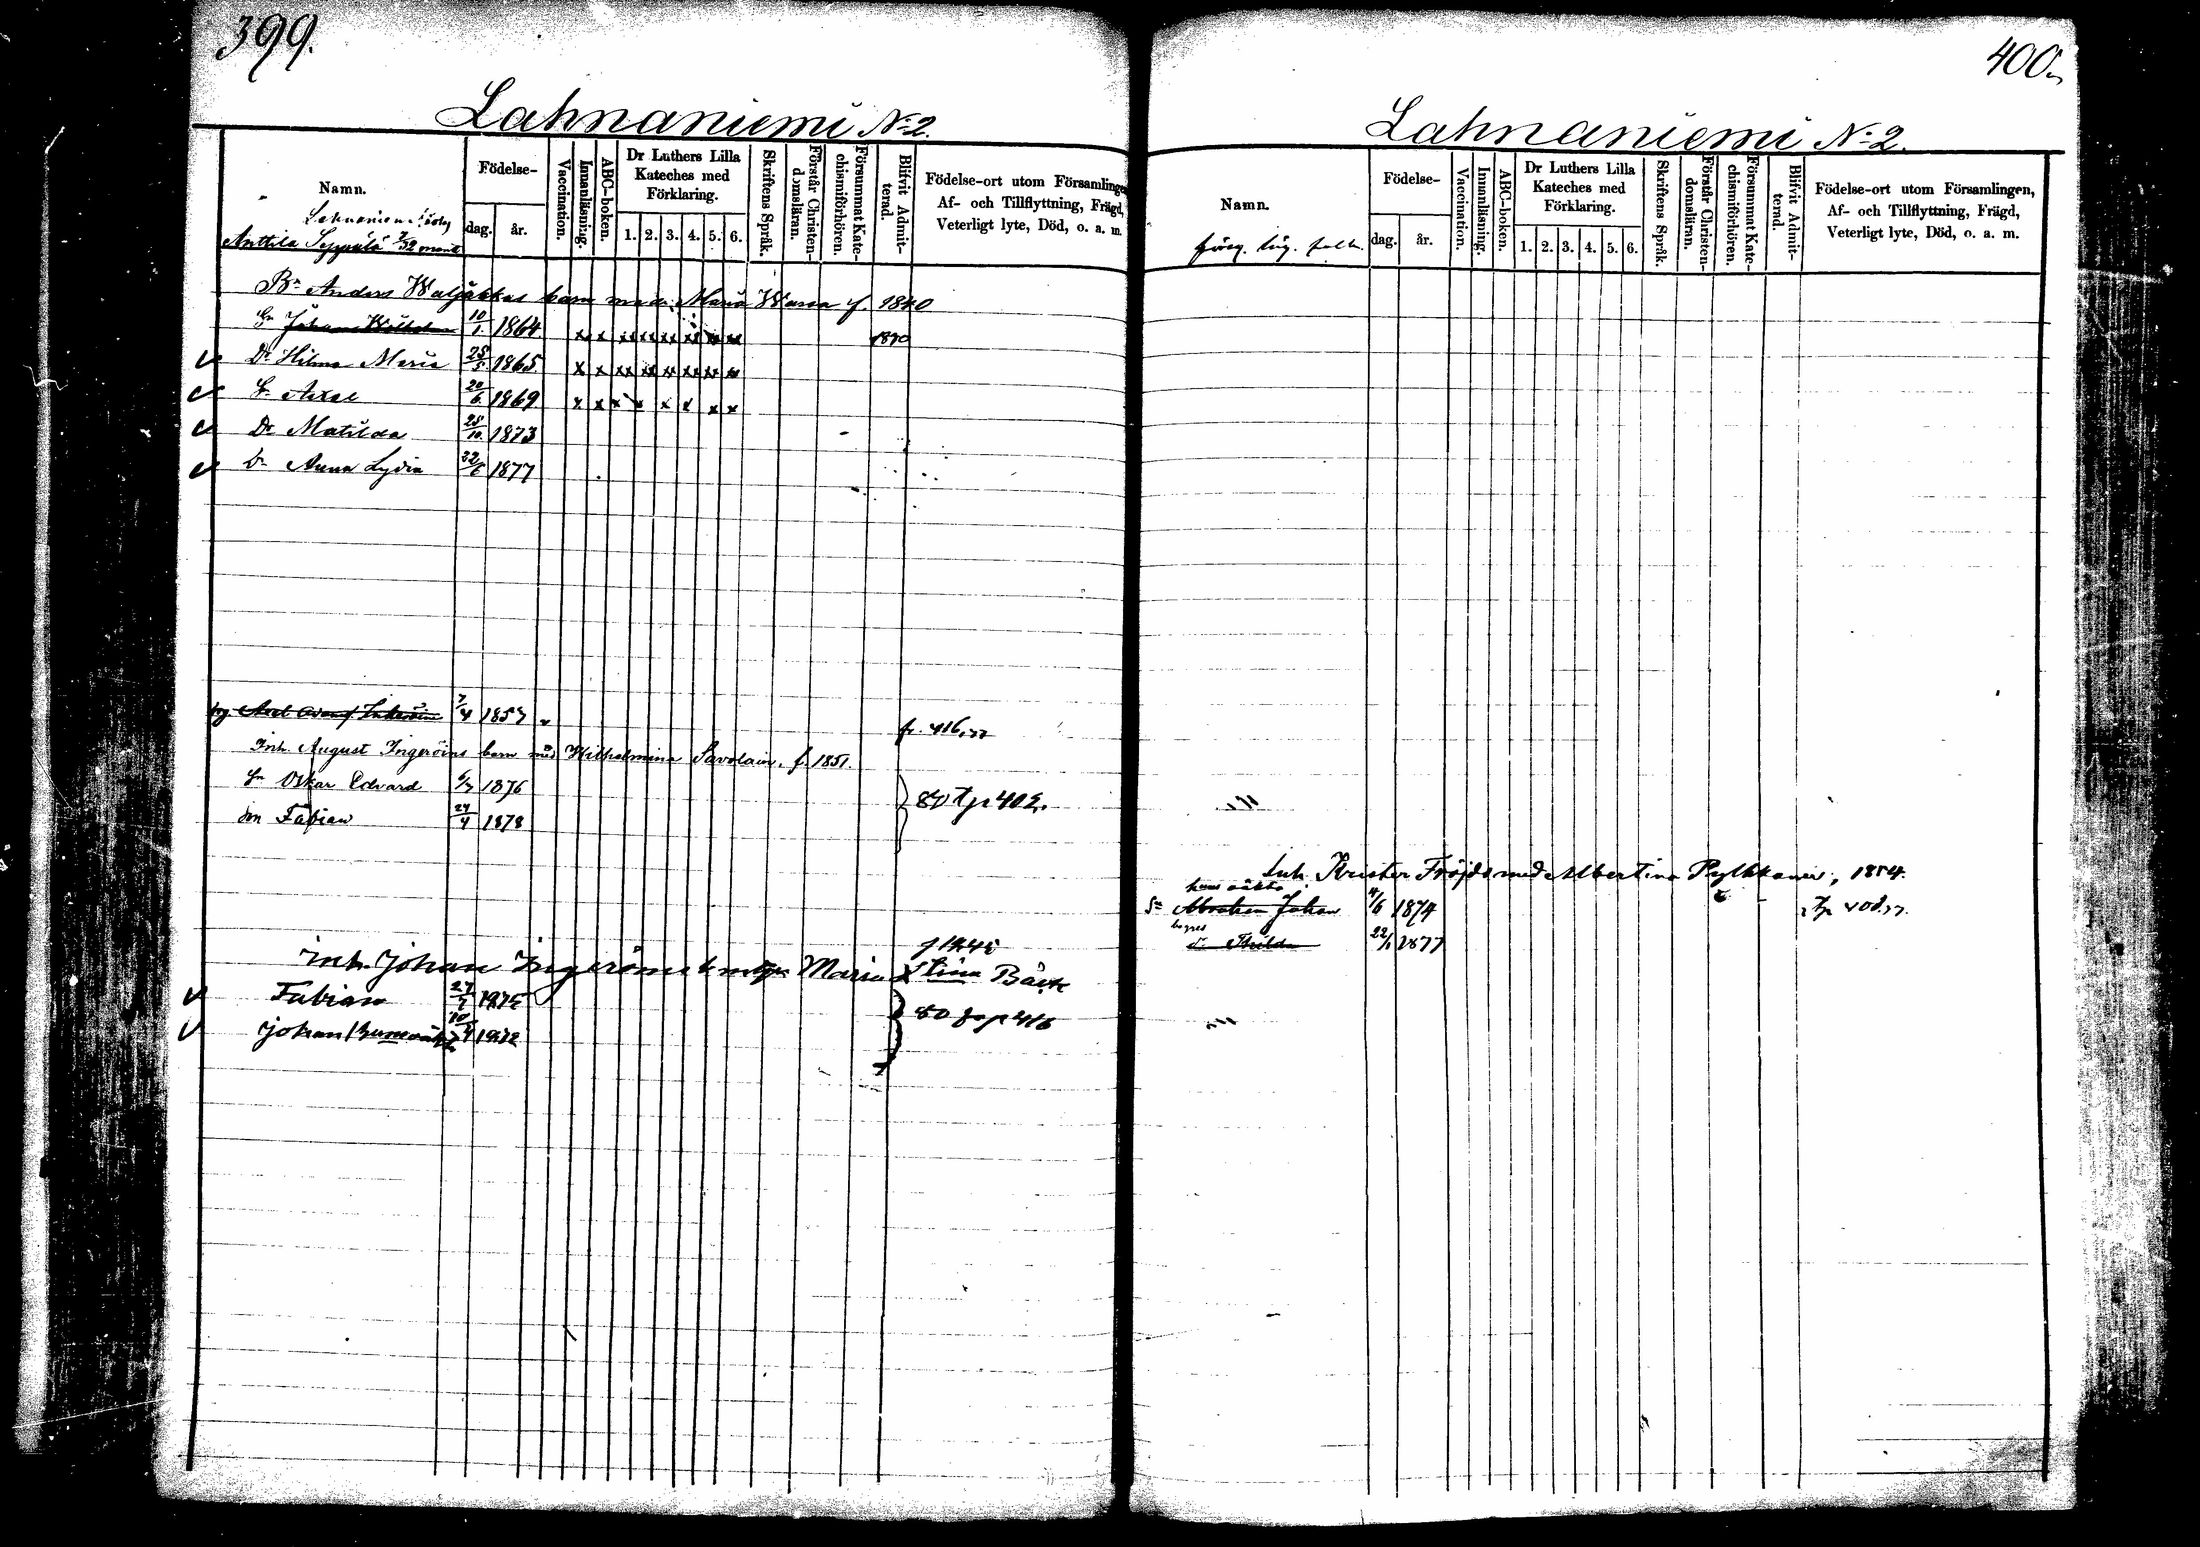 399.
Lahnaniemi No 2.
Namn.
Födelse-
dag. år.
Vaccination.
Innanläsning.
ABC-boken.
Dr Luthers Lilla
Kateches med
Förklaring.
1. 2. 3. 4. 5. 6.
Skriftens Språk.
Förstår Christen-
domsläran.
Försummat Kate-
chismiförhören.
Blifvit Admit-
terad.
Födelse-ort utom Församlingen,
Af- och Tillflyttning, Frägd,
Veterligt lyte, Död, o. a. m.
Anttila Seppälä 7/32 mant
Bn Anders Waljakkas barn med Maria Wassa f. 1840
Sn Johan Wilhelm 10/1 1864 1890
Dr Hilma Maria 1865
Sn Axel 20/6 1869
Dr Matilda 28/10 1873
Dr Anna Lydia 22/6 1877
7/4 1857 fr. 416,77
Inh. August Ingeröins barn med Wilhelmina Savolain, f. 1851.
Sn Oskar Edvard 6/7 1876
son Fabian 24/4 1878
80 tp 402.
f 1845
inh. Johan Ingeröins Maria Stina Bäck
Fabian 1875
Johan 10/4 1872
80 416
400.
Lahnaniemi No 2.
Namn.
Födelse-
dag. år.
Vaccination.
Innanläsning.
ABC-boken.
Dr Luthers Lilla
Kateches med
Förklaring.
1. 2. 3. 4. 5. 6.
Skriftens Språk.
Förstår Christen-
domsläran.
Försummat Kate-
chismiförhören.
Blifvit Admit-
terad.
Födelse-ort utom Församlingen,
Af- och Tillflyttning, Frägd,
Veterligt lyte, Död, o. a. m.
Inh. Krister Fröjd med Albertina Pylkkänen, 1854.
hans oäkta
Sn Abraham Johan 4/6 1874 Tp 408,77.
Thilda 22/1 1877